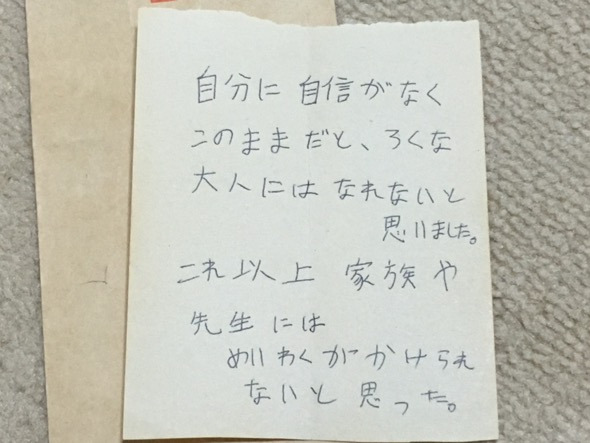 自分に 自信がなく
このままだと、ろくな
大人には なれないと
思いました。
これ以上 家族や
先生には
めいわくがかけられ
ないと思った。